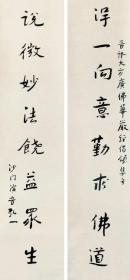 晉譯大方廣佛華嚴經偈頌集句
淨一向意勤求佛道
說微妙法饒益眾生
沙門演音弘一